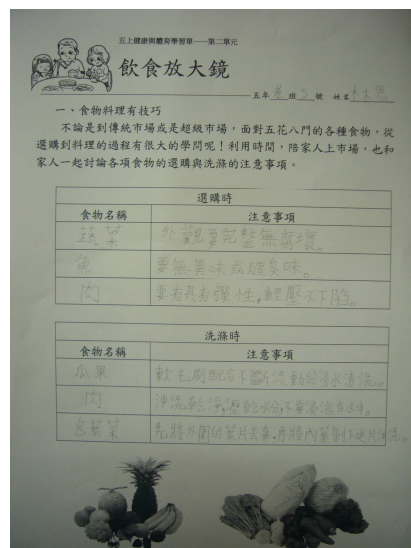 五上健康與體育學習單——第二單元
飲食放大鏡
五年 班 號 姓名
一、食物料理有技巧
不論是到傳統市場或是超級市場，面對五花八門的各種食物，從
選購到料理的過程有很大的學問呢！利用時間，陪家人上市場，也和
家人一起討論各項食物的選購與洗滌的注意事項。
選購時
食物名稱 注意事項
蔬菜 外觀要完整無腐壞。
魚 要無異味或腥臭味。
肉 要有彈性，輕壓不下陷。
洗滌時
食物名稱 注意事項
瓜果 軟毛刷配合不斷流動的清水清洗。
肉 沖洗乾淨，瀝乾水分，不要浸泡在水中。
包葉菜 先將外圍的葉片去棄，再將內葉剝作片沖洗。